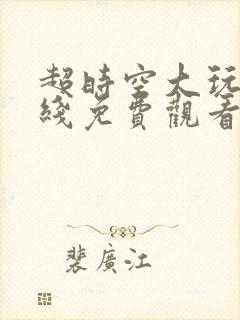 超時空大玩
綫免費觀看
裴廣江